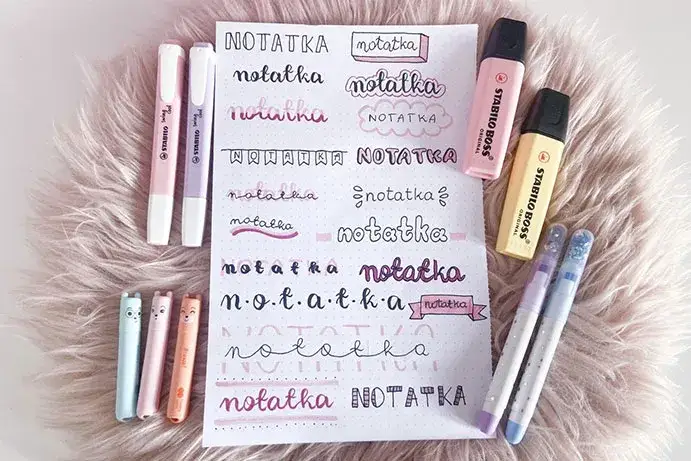 NOTATKA notatka
notatka notatka
notatka NOTATKA
NOTATKA NOTATKA
notatka notatka
notatka notatka
notatka notatka
n·o·t·a·t·k·a notatka
NOTATKA
notatka
notatka NOTATKA
STABILO swing cool
STABILO swing cool
STABILO BOSS ORIGINAL
STABILO BOSS ORIGINAL